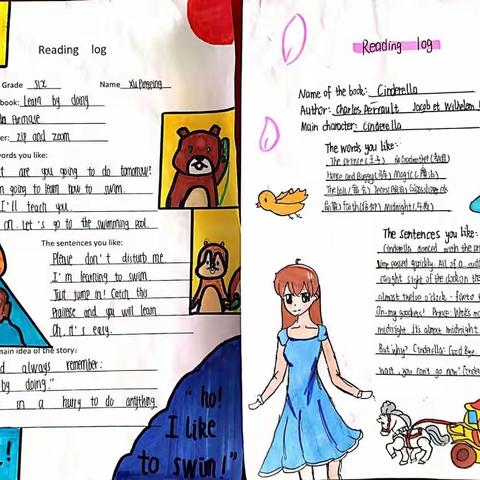 Reading log
Grade six Name Xu Pengying
book: Learn by doing
er: zip and zoom
words you like:
t are you going to do tomorrow?
n going to learn how to swim.
I'll teach you.
on let's go to the swimming pool.
The sentences you like:
Please don't disturb me
I'm learning to swim
Just jump in! Catch this
and you will learn
Oh, it's easy.
main idea of the story:
d always remember:
by doing."
in a hurry to do anything.
"ho!
I like
to swim!"
Reading log
Name of the book: Cinderella
Author: Charles Perrault Jacob et Wilhelm
Main character: Cinderella
The words you like:
The prince (王子)
Horse and Buggy Magic
The ball
faith Midnight
The sentences you like:
Cinderella danced with the pri
time passed quickly. All of a sudd
caught sight of the clock on the
almost twelve o'clock.
Oh, my goodness! Prince: What's
midnight. Its almost midnight.
But why? Cinderella: Good Bye
wait, you can't go now! Cinde